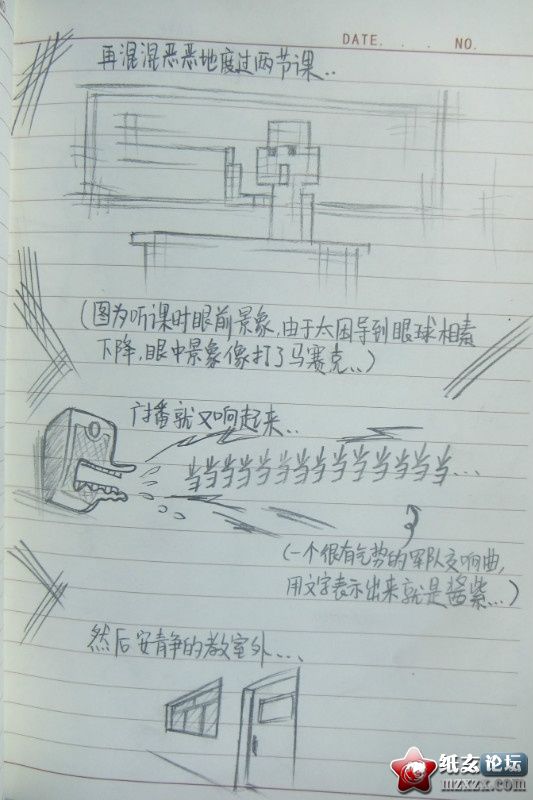 DATE. . . . NO.
再混混恶恶地度过两节课..
(图为听课时眼前景象,由于太困导到眼球相素
下降,眼中景象像打了马赛克...)
广播就又响起来..
当当当当当当当当当当当当当当当...
(一个很有气势的军队交响曲,
用文字表示出来就是酱紫...)
然后安静的教室外....
纸女论坛
mzxzx.com